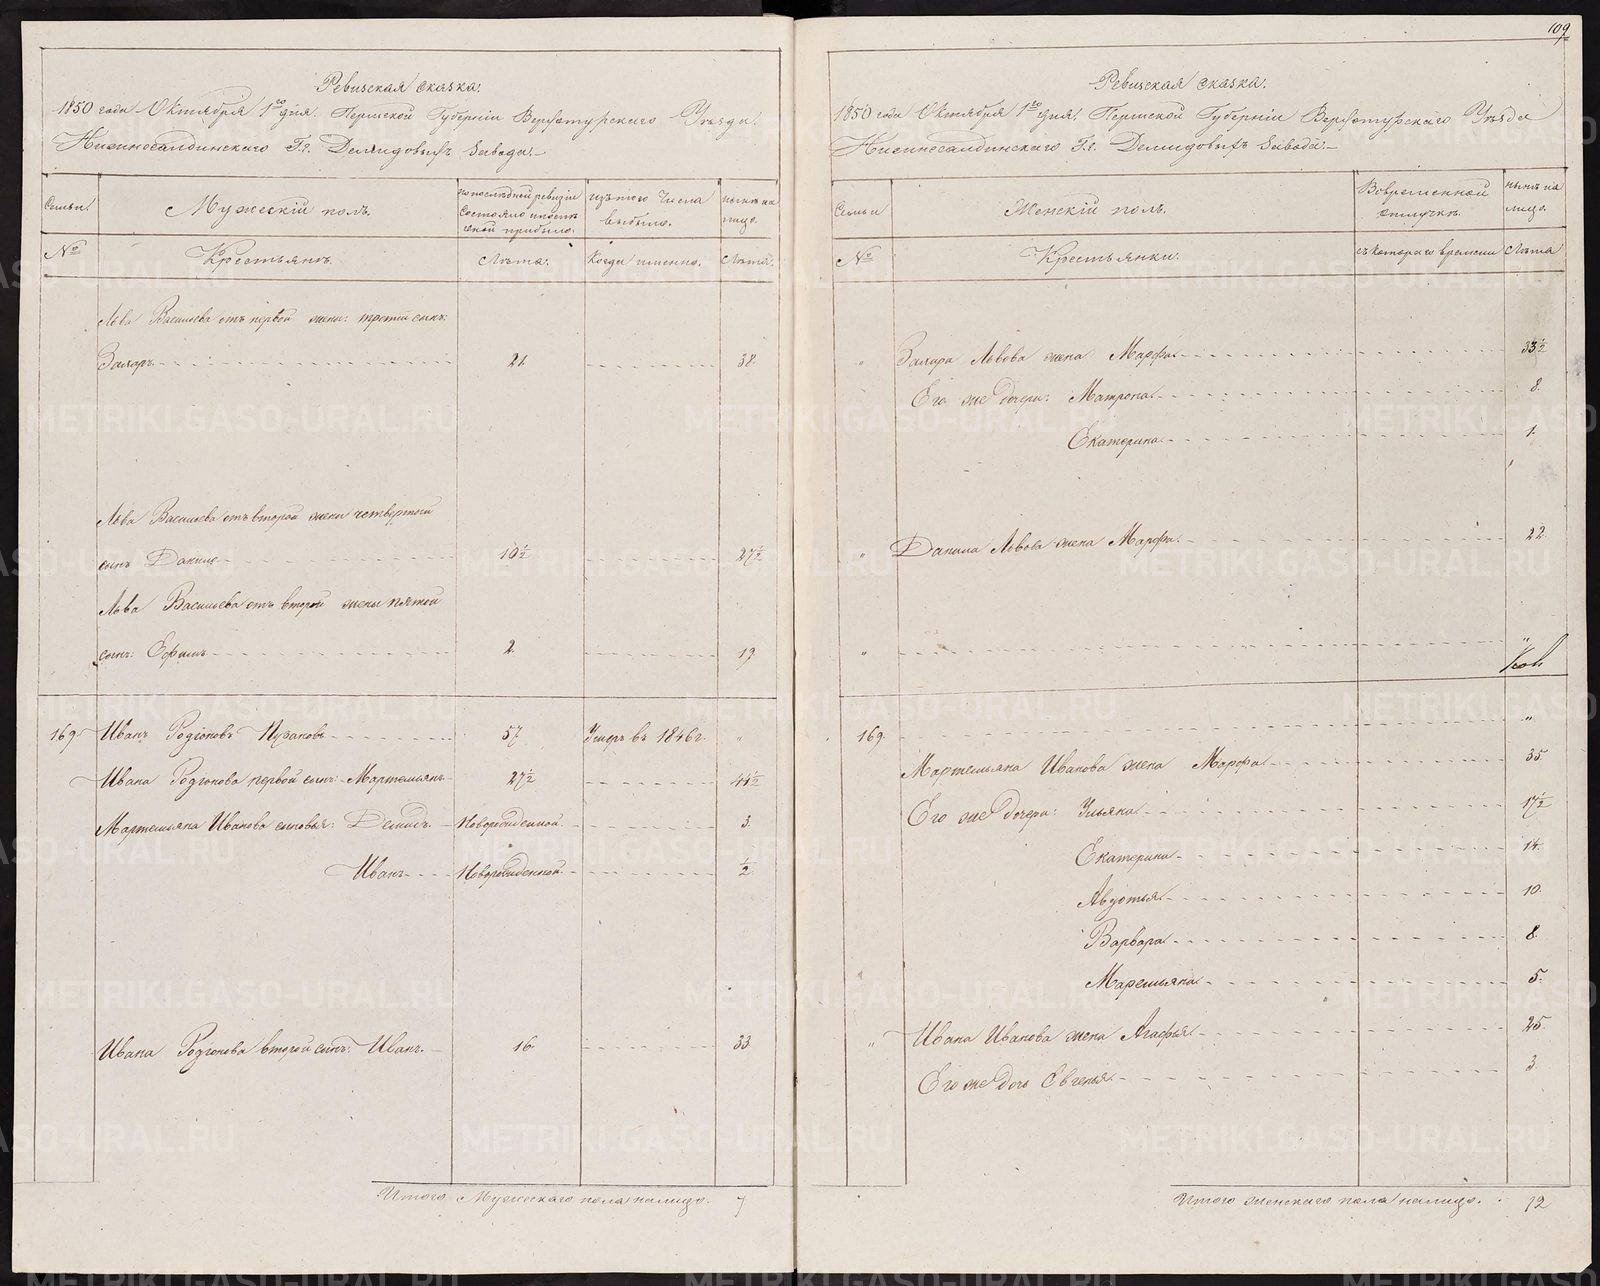 109
Ревизская сказка.
1850 года Октября 1го дня. Пермской Губерніи Верхотурскаго Уѣзда.
Нижнесалдинскаго Г.г. Демидовыхъ Завода.
Семьи. Мужескій полъ. По послѣдней ревизіи состояло и послѣ оной прибыло. Изъ того числа выбыло. Нынѣ на лицо.
№ Крестьянъ. Лѣта. Когда именно. Лѣта.
Льва Васильева отъ первой жены: третій сынъ:
Захаръ 21. 38.
Льва Васильева отъ второй жены четвертой
сынъ Данило 10½ 27½
Льва Васильева отъ второй жены пятой
сынъ: Ефимъ 2. 19
169. Иванъ Родіоновъ 57 Умеръ въ 1846г. "
Ивана Родіонова первой сынъ: Мартемьянъ 27½ 44½
Мартемьяна Иванова сыновья: Демидъ. Новорожденной 3.
Иванъ Новорожденной ½
Ивана Родіонова второй сынъ: Иванъ. 16. 33.
Итого Мужескаго пола налицо. 7
Ревизская сказка.
1850 года Октября 1го дня. Пермской Губерніи Верхотурскаго Уѣзда
Нижнесалдинскаго Г.г. Демидовыхъ Завода.
Семьи Женскій полъ. Во временной отлучкѣ. Нынѣ на лицо.
№ Крестьянки. Съ котораго времени Лѣта
" Захара Львова жена Марфа. 33½
Его же дочери: Матрона. 8.
Екатерина 1.
" Данила Львова жена Марфа. 22.
" "
169. "
Мартемьяна Иванова жена Марфа 35
Его же дочери: Ульяна 17½
Екатерина 14.
Авдотья 10.
Варвара 8
Маремьяна 5.
" Ивана Иванова жена Агафья 25.
Его же дочь Евгенья 3.
Итого женскаго пола налицо. 12
METRIKI.GASO-URAL.RU